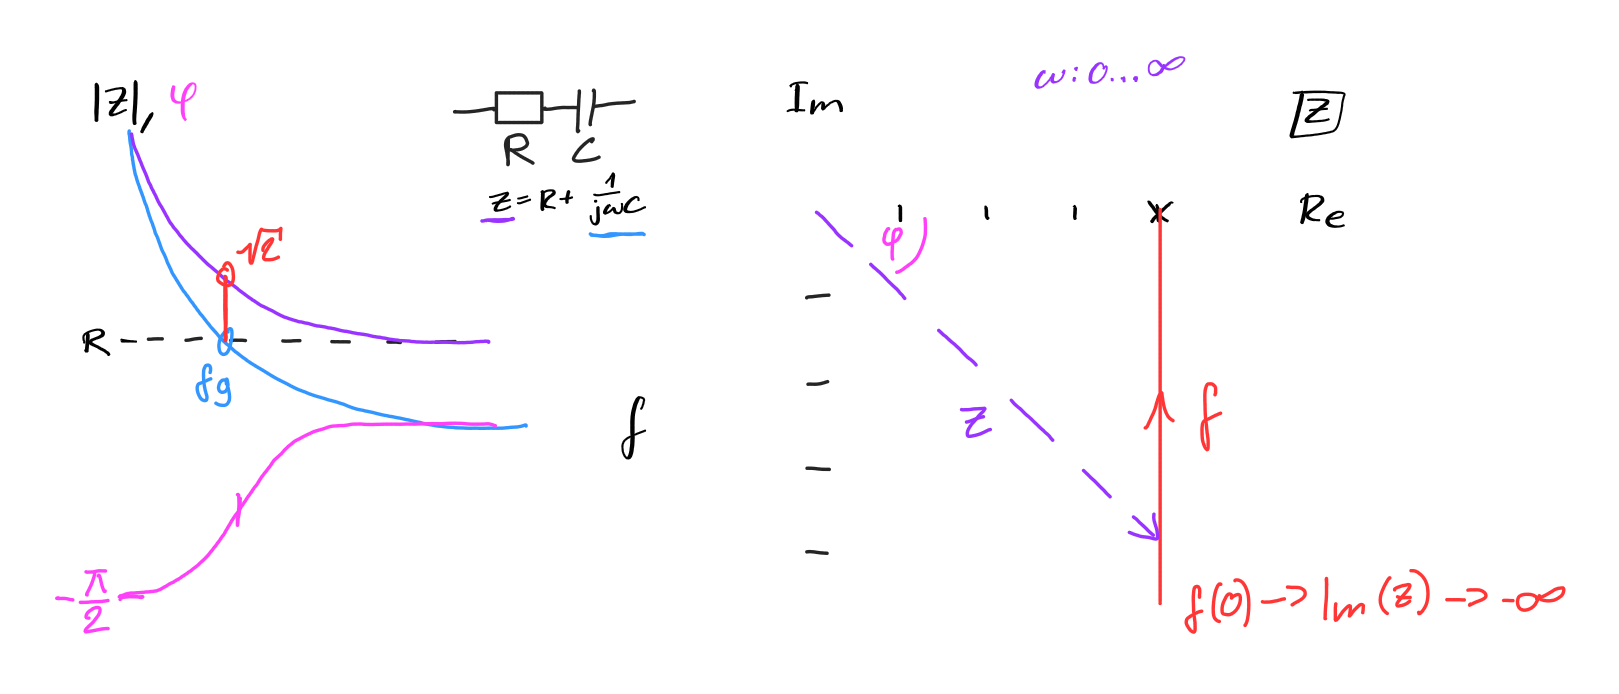 |Z|, φ
R C
Z = R + 1/jωC
√2
R
fg
f
-π/2
Im
ω: 0...∞
Z
Re
φ
Z
f
f(0) -> Im(Z) -> -∞